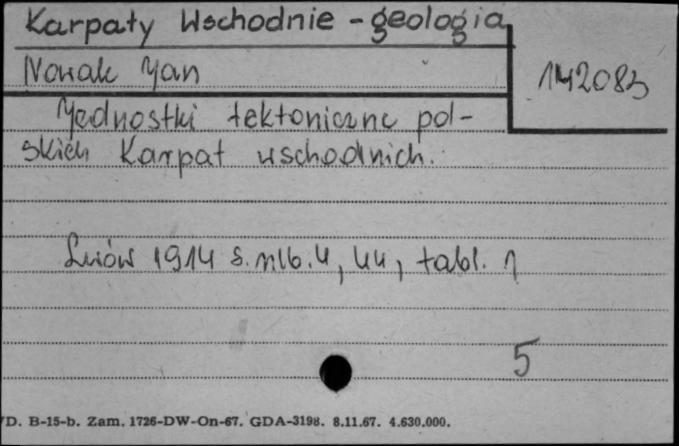 Karpaty Wschodnie - geologia
Nowak Jan
142083
Jednostki tektoniczne pol-
skich Karpat wschodnich.
Lwów 1914 s. nlb. 4, 44, tabl. 1
5
/D. B-15-b. Zam. 1726-DW-On-67. GDA-3198. 8.11.67. 4.630.000.